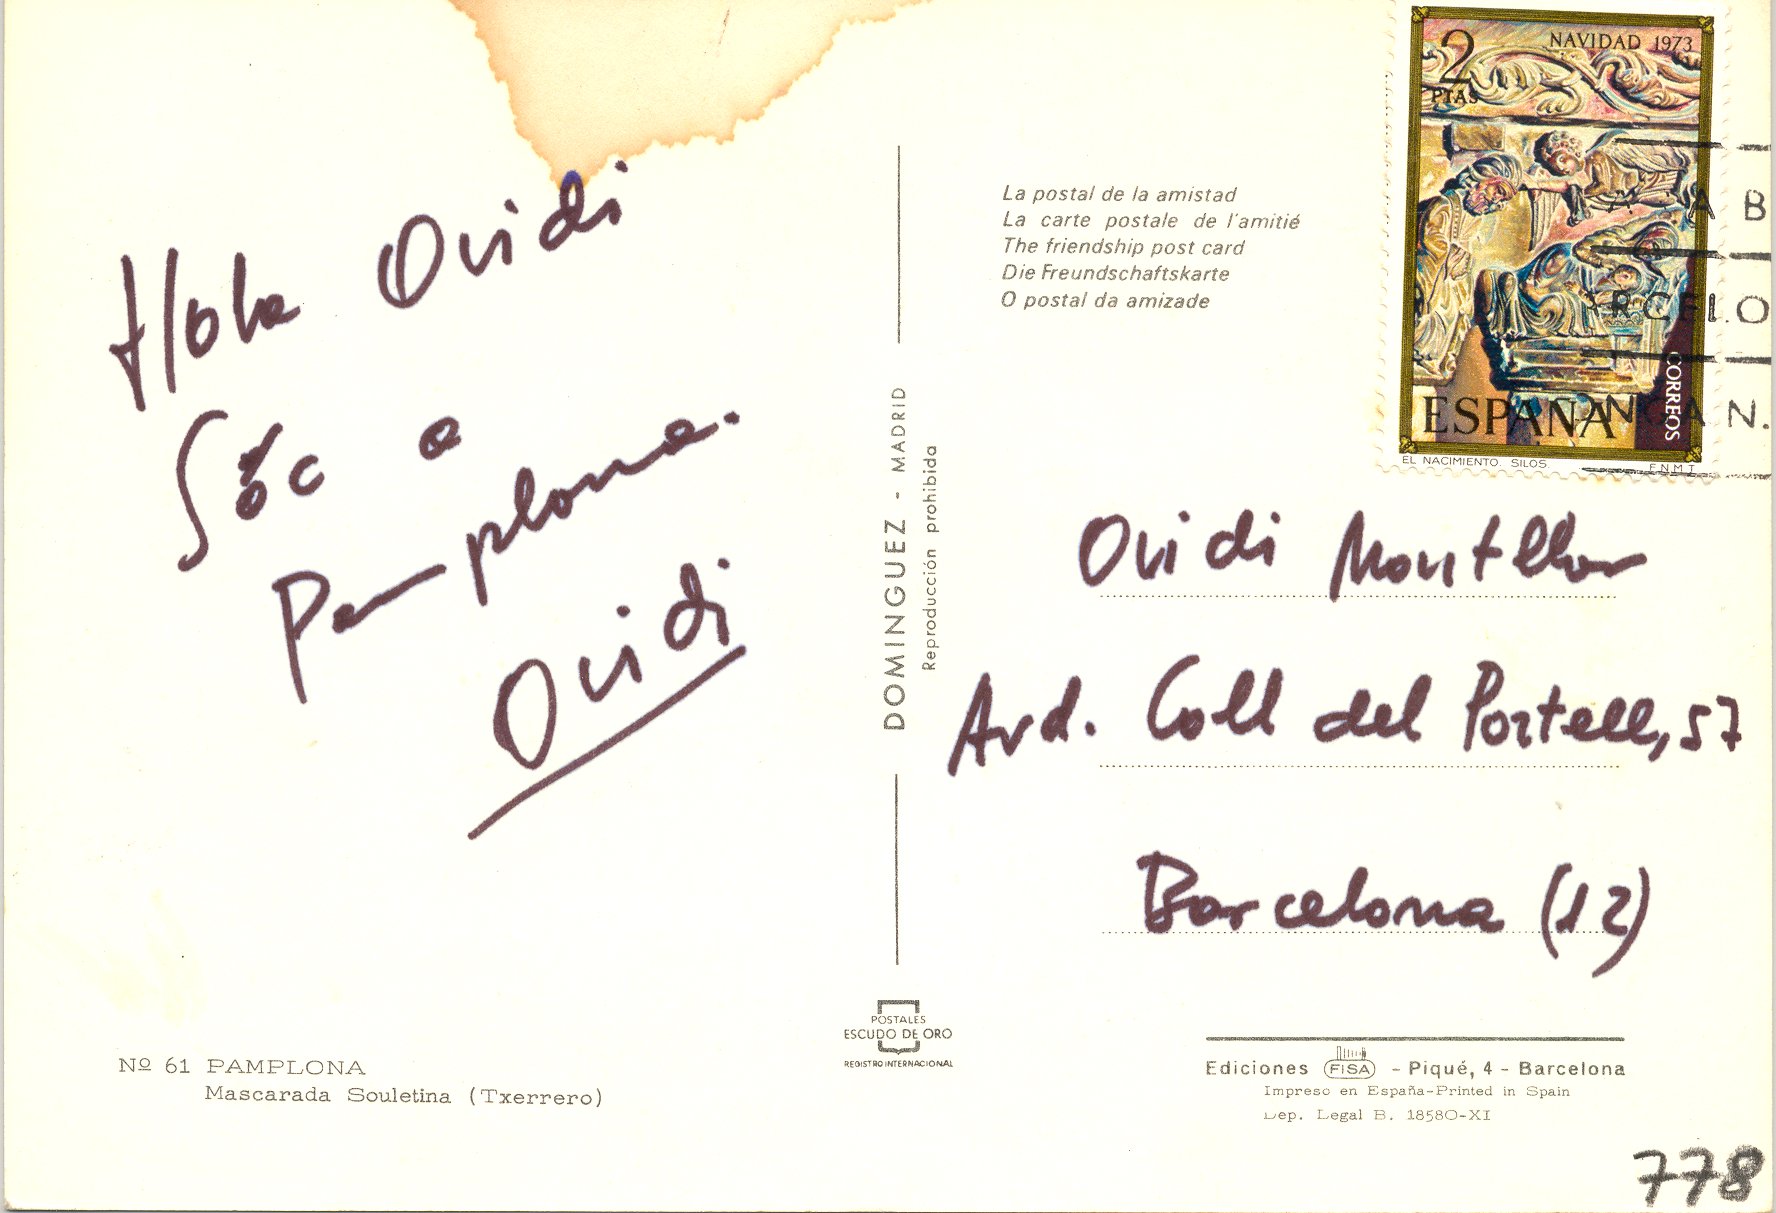 Hola Ovidi
Sóc a
Pamplona.
Ovidi
Nº 61 PAMPLONA
Mascarada Souletina (Txerrero)
DOMINGUEZ - MADRID
Reproducción prohibida
POSTALES
ESCUDO DE ORO
REGISTRO INTERNACIONAL
La postal de la amistad
La carte postale de l'amitié
The friendship post card
Die Freundschaftskarte
O postal da amizade
2
PTAS
NAVIDAD 1973
CORREOS
ESPAÑA
EL NACIMIENTO. SILOS.
F.N.M.T.
Ovidi Montllor
Avd. Coll del Portell, 57
Barcelona (12)
Ediciones FISA - Piqué, 4 - Barcelona
Impreso en España-Printed in Spain
Dep. Legal B. 18580-XI
778